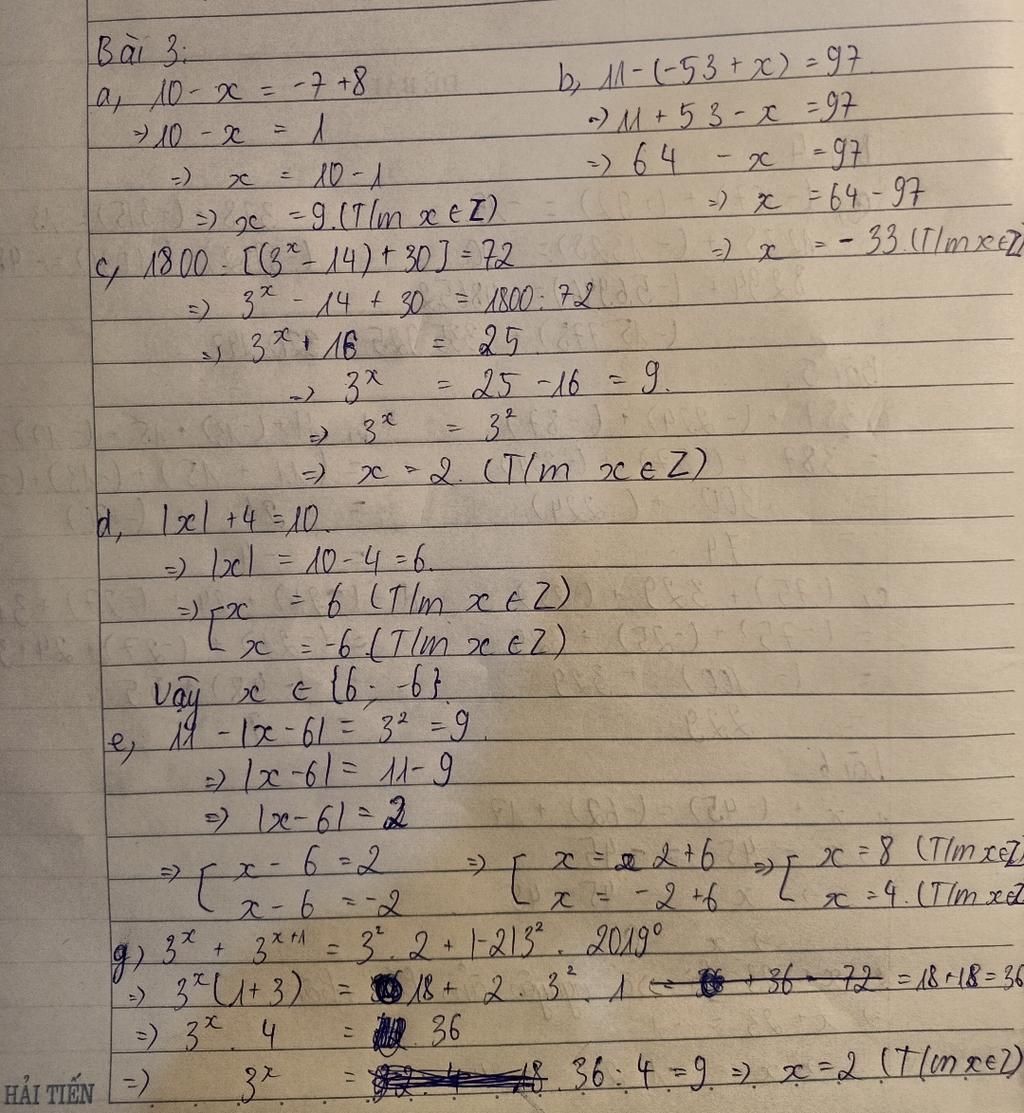 Bài 3:
a, 10 - x = -7 + 8
=> 10 - x = 1
=> x = 10 - 1
=> x = 9. (T/m x ∈ Z)
b, 11 - (-53 + x) = 97
=> 11 + 53 - x = 97
=> 64 - x = 97
=> x = 64 - 97
=> x = -33. (T/m x ∈ Z)
c, 1800 : [(3^x - 14) + 30] = 72
=> 3^x - 14 + 30 = 1800 : 72
=> 3^x + 16 = 25
=> 3^x = 25 - 16 = 9.
=> 3^x = 3²
=> x = 2. (T/m x ∈ Z)
d, |x| + 4 = 10.
=> |x| = 10 - 4 = 6.
=> [ x = 6 (T/m x ∈ Z)
x = -6 (T/m x ∈ Z)
Vậy x ∈ {6; -6}
e, 11 - |x - 6| = 3² = 9.
=> |x - 6| = 11 - 9
=> |x - 6| = 2
=> [ x - 6 = 2 => [ x = 2 + 6 => [ x = 8 (T/m x ∈ Z)
x - 6 = -2 x = -2 + 6 x = 4. (T/m x ∈ Z
g) 3^x + 3^(x+1) = 3² . 2 + |-2| 3² . 2019⁰
=> 3^x (1 + 3) = 18 + 2 . 3² . 1 = + 36 = 72 = 18 + 18 = 36
=> 3^x . 4 = 36
=> 3^x = 36 : 4 = 9 => x = 2 (T/m x ∈ Z)
HẢI TIẾN